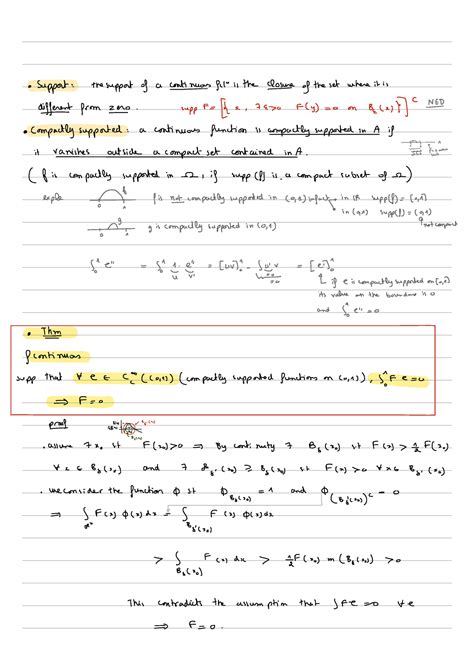 • Support : the support of a continuous fct° is the closure of the set where it is
different from zero. supp F = [{ x, ∃ δ>0 F(y) = 0 on B_δ(x)}]^C NED
• Compactly supported : a continuous function is compactly supported in A if
it vanishes outside a compact set contained in A.
( f is compactly supported in Ω, if supp(f) is a compact subset of Ω )
exple f is not compactly supported in (0,1) in ℝ supp(f) = [0,1]
0 1 in (0,1) supp(f) = (0,1)
not compact
0 1 g is compactly supported in (0,1)
∫₀¹ e'' = ∫₀¹ 1 · e'' = [uv]₀¹ - ∫ u' v = [e']₀¹
u v' = 0
if e is compactly supported on [0,1]
its value on the boundary is 0
and ∫₀¹ e'' = 0
• Thm
f continuous
supp that ∀ e ∈ C_c^∞((0,1)) (compactly supported functions on (0,1)), ∫₀¹ F e = 0
⇒ F = 0
proof
. assume ∃ x₀ st F(x₀) > 0 ⇒ By continuity ∃ B_δ(x₀) st F(x) > ½ F(x₀)
∀ x ∈ B_δ(x₀) and ∃ B_δ'(x₀) ⊇ B_δ(x₀) st F(x) > 0 ∀ x ∈ B_δ'(x₀)
. we consider the function ϕ st ϕ_{B_δ(x₀)} = 1 and ϕ_{(B_δ'(x₀))^C} = 0
⇒ ∫ F(x) ϕ(x) dx = ∫_{B_δ'(x₀)} F(x) ϕ(x) dx
> ∫_{B_δ(x₀)} F(x) dx > ½ F(x₀) m(B_δ(x₀)) > 0
This contradicts the assumption that ∫ F e = 0 ∀ e
⇒ F = 0.